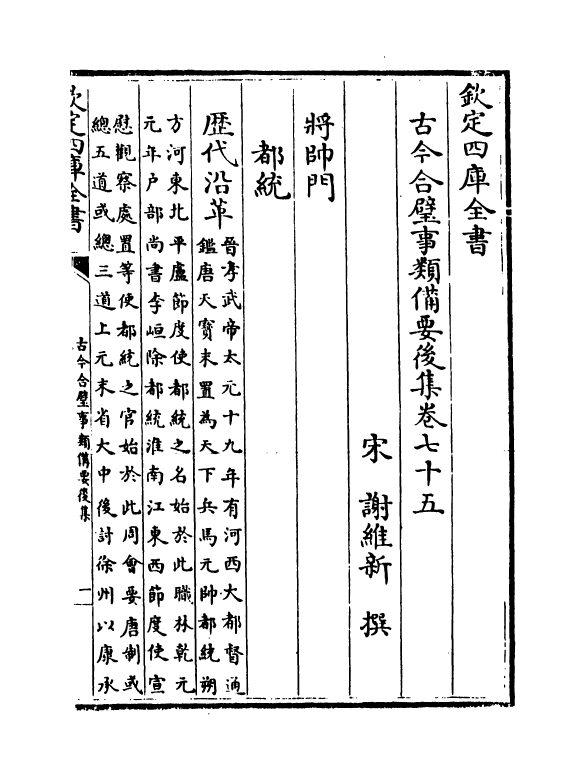 欽定四庫全書
古今合璧事類備要後集卷七十五
宋 謝維新 撰
將帥門
都統
歴代沿革
晉孝武帝太元十九年有河西大都督通
鑑唐天寳末置為天下兵馬元帥都統朔
方河東北平盧節度使都統之名始於此職林乾元
元年户部尚書李峘除都統淮南江東西節度使宣
慰觀察處置等使都統之官始於此周會要唐制或
總五道或總三道上元末省大中後討徐州以康承
欽定四庫全書
古今合璧事類備要後集
一